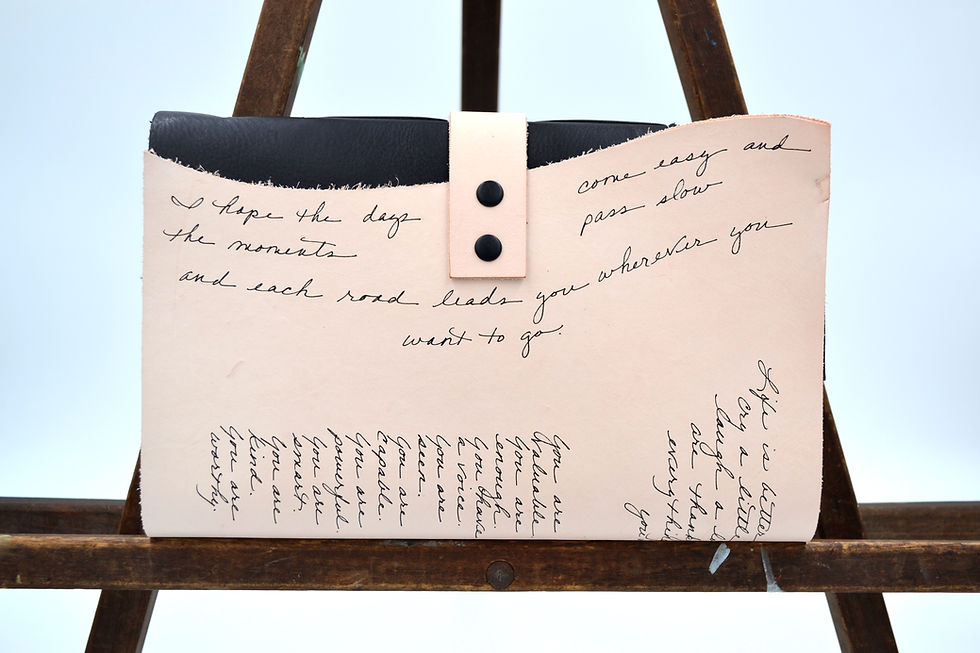 I hope the days come easy and
the moments pass slow
and each road leads you wherever you
want to go.
You are
Valuable
You are
enough.
You have
a voice.
You are
seen.
You are
Capable.
You are
powerful.
You are
smart.
You are
kind.
You are
worthy.
Life is better
cry a little
laugh a
are